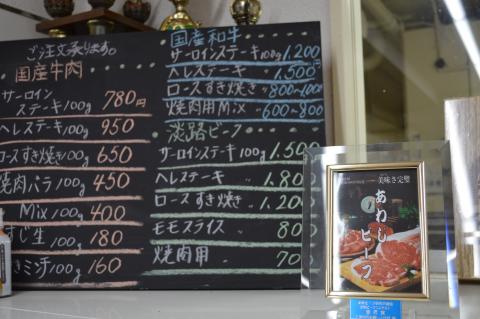 ご注文承ります。
国産牛肉
サーロイン
ステーキ100g 780円
ヘレステーキ100g 950
ロースすき焼き100g 650
焼肉バラ100g 450
Mix 100g 400
すじ生 100g 180
ミンチ100g 160
国産和牛
サーロインステーキ100g 1.200
ヘレステーキ 〃 1.500
ロースすき焼き 〃 800~1,000
焼肉用Mix 〃 600~800
淡路ビーフ
サーロインステーキ100g 1.500
ヘレステーキ 〃 1.800
ロースすき焼き 〃 1.200
モモスライス 〃 800
焼肉用 〃 700
美味さ完璧
あわじ
ビーフ